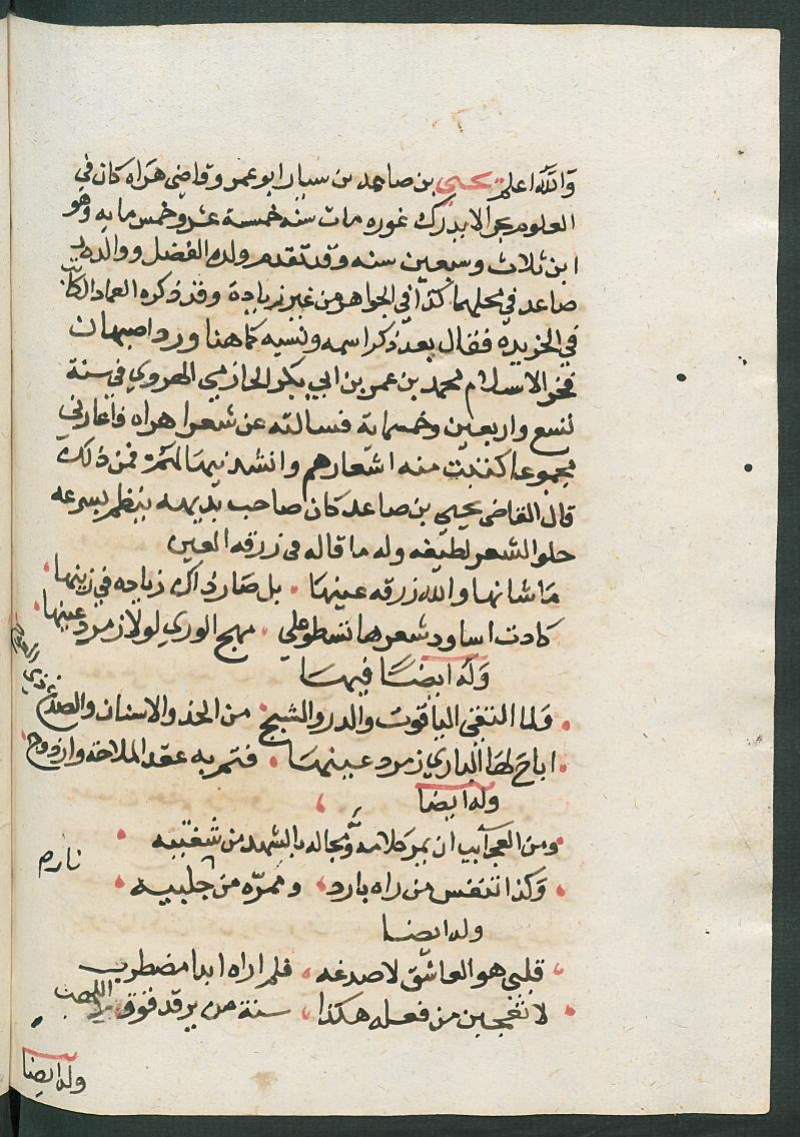 والله اعلم يحيى بن صاعد بن سيار ابو عمرو قاضي هراه كان في
العلوم بحرا لا يدرك غوره مات سنه خمسة عشر وخمس مايه وهو
ابن ثلاث وسبعين سنه وقد تقدم ولده الفضل ووالده
صاعد في محلهما كذا في الجواهر من غير زيادة وقد ذكره العماد الكاتب
في الخريده فقال بعد ذكر اسمه ونسبه كما هنا ورد اصبهان
فخر الاسلام محمد بن عمر بن ابي بكر الحازمي الهروي في سنة
تسع واربعين وخمسماية فسالته عن شعرا هراه فاعارني
مجموعا كتبت منه اشعارهم وانشد نيها فمن ذلك
قال القاضي يحيى بن صاعد كان صاحب بديهه ينظم بسرعه
حلو الشعر لطيفه وله ما قاله في زرقه العين
ما شانها والله زرقه عينها بل صار ذاك زياده في زينها
كادت اساود شعرها تسطو على مهج الورى لولا زمرد عينها
وله ايضا فيها
ولما التقى الياقوت والدر والشبج من الخد والاسنان والصدغ
اباح لها الباري زمرد عينها فتم به عقد الملاحة وازدوج
وله ايضا
ومن العجايب ان يمر كلامه ومجاله بالشهد من شفتيه
نارم
وكذا تنفس من راه بارد وممره من جلبيه
وله ايضا
قلبي هو العاشق لا صدغه فلم اراه ابدا مضطرب
لا تعجبن من فعله هكذا سنة من يرقد فوق اللهب
وله ايضا